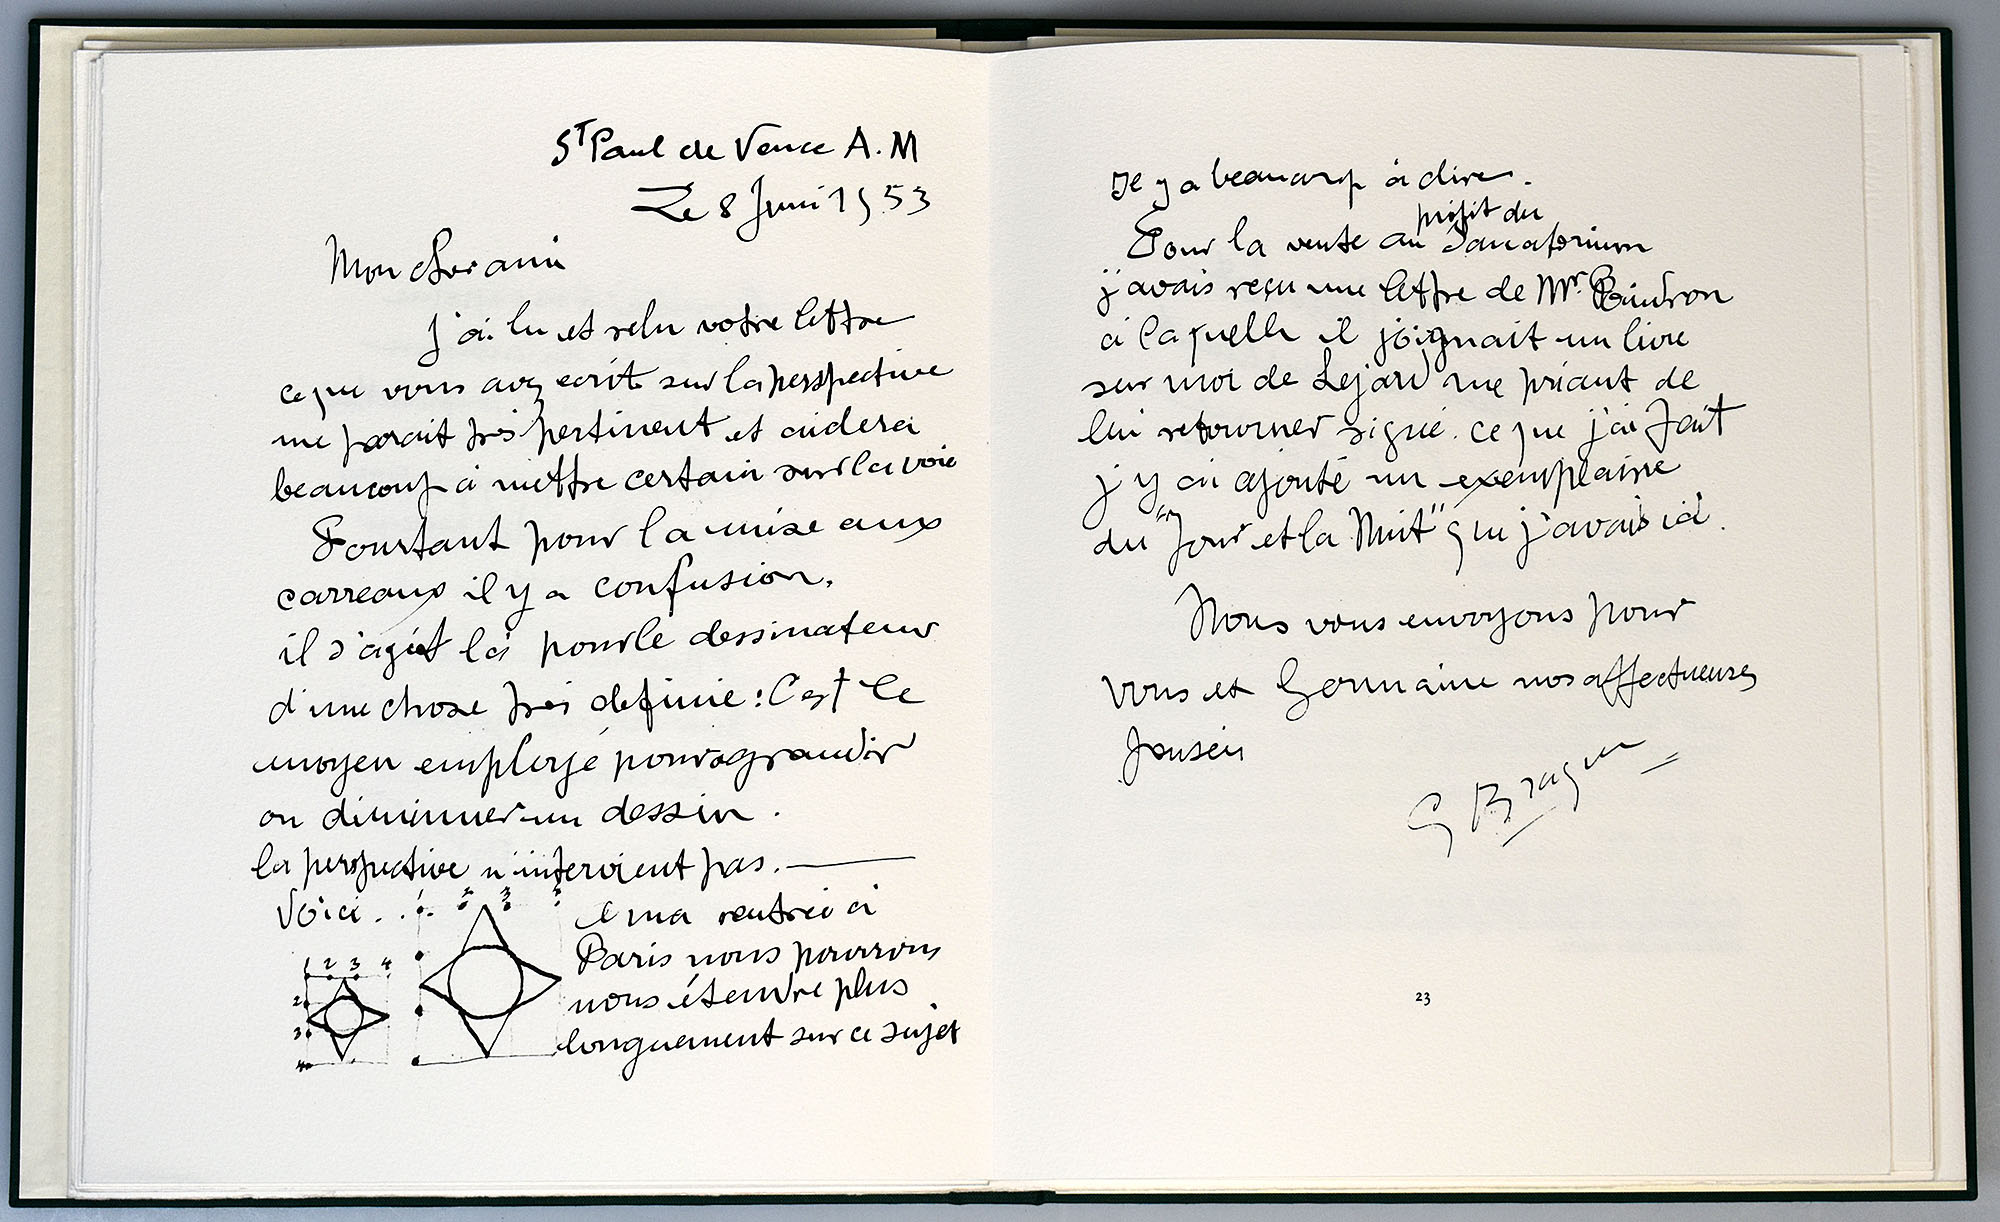 St Paul de Vence A.M
Le 8 Juin 1953
Mon cher ami
J'ai lu et relu votre lettre
ce que vous avez ecrit sur la perspective
me parait très pertinent et aidera
beaucoup à mettre certain sur la voie
Pourtant pour la mise aux
carreaux il y a confusion.
il s'agit là pour le dessinateur
d'une chose très definie : C'est le
moyen employé pour agrandir
ou diminuer un dessin.
la perspective n'intervient pas.
Voici . . .
1 2 3 4
2
3
4
a ma rentrée à
Paris nous pourrons
nous étendre plus
longuement sur ce sujet.
Il y a beaucoup à dire.
profit du
Pour la vente au Sanatorium
j'avais reçu une lettre de Mr.
à laquelle il joignait un livre
sur moi de Lejard me priant de
lui retourner signé. ce que j'ai fait
j'y ai ajouté un exemplaire
du "Jour et la Nuit" que j'avais ici.
Nous vous envoyons pour
vous et Germaine nos affectueuses
pensées
G Braque
23